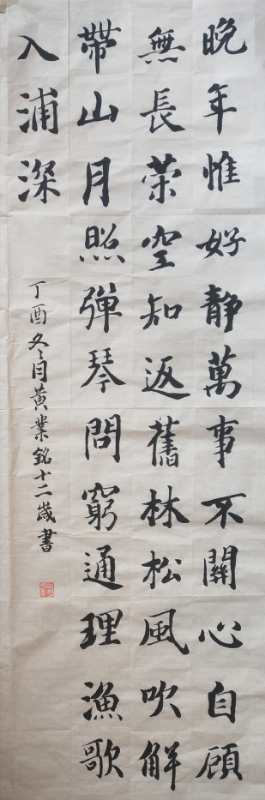 晚年惟好靜萬事不關心自顧
無長策空知返舊林松風吹解
帶山月照彈琴問窮通理漁歌
入浦深
丁酉冬月黃業銘十二歲書